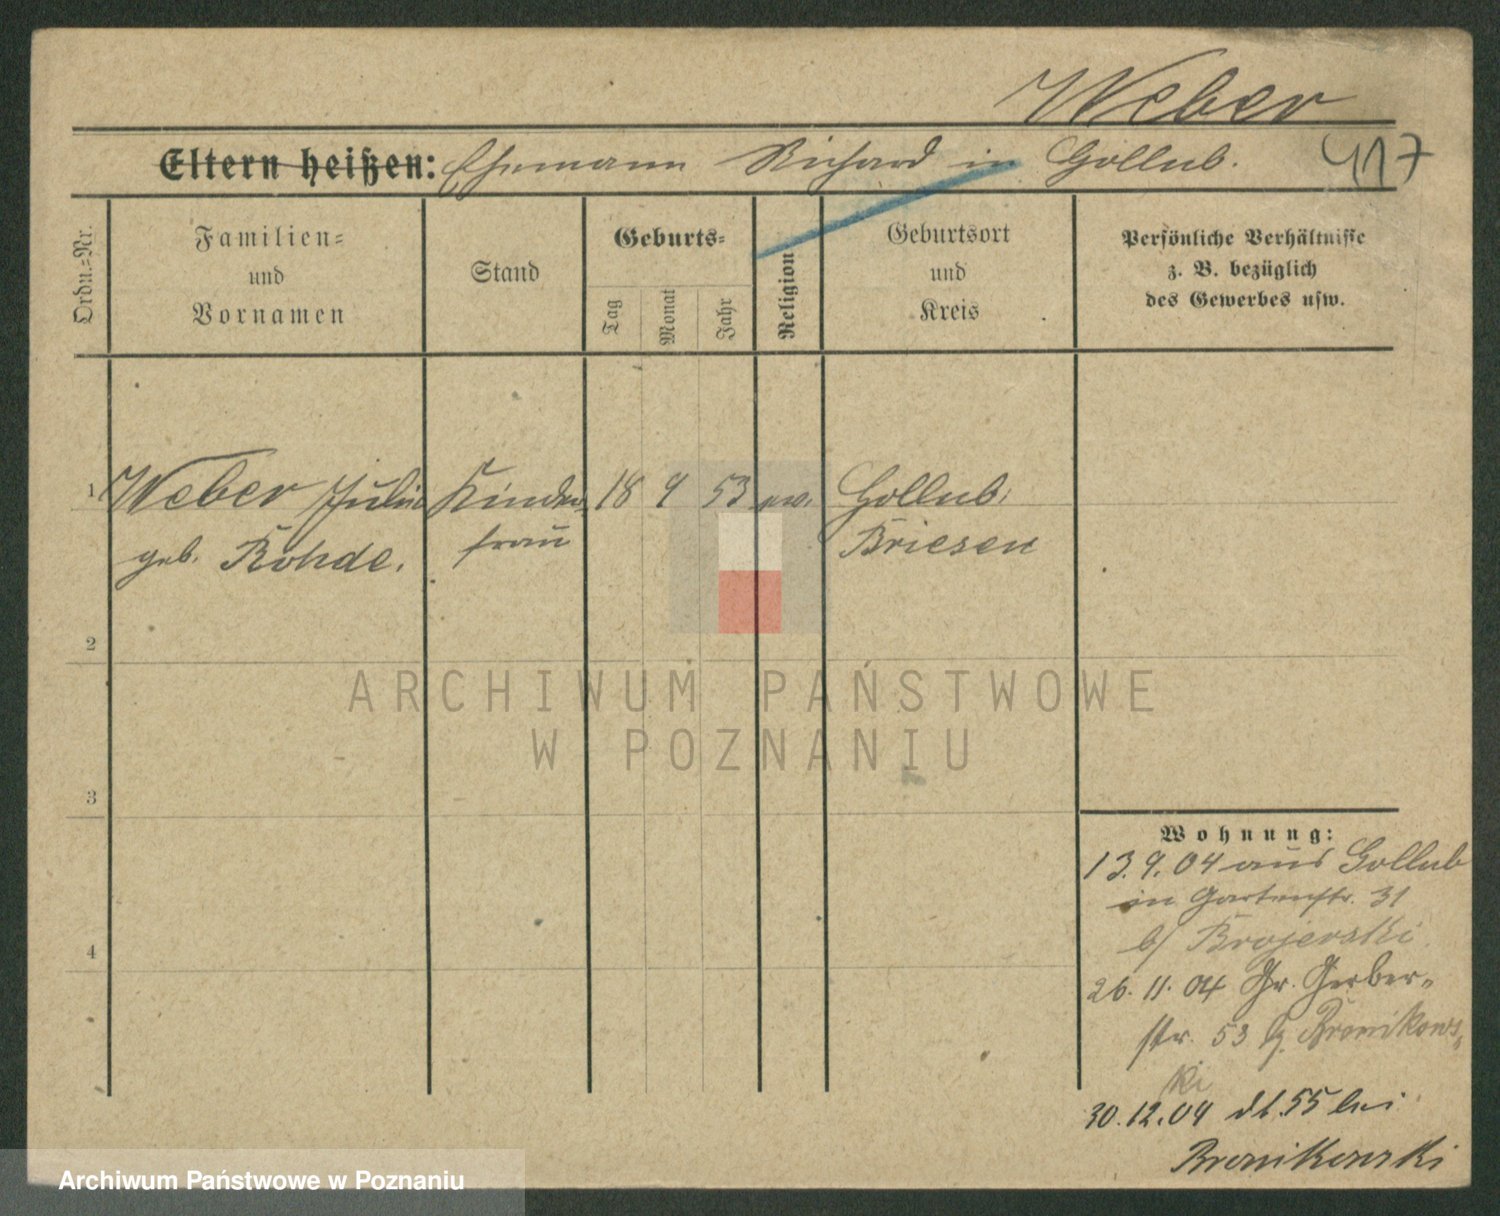 Weber
Eltern heißen: Ehemann Richard in Gollub. 417
Ordn.=Nr.
Familien=
und
Vornamen
Stand
Geburts=
Tag
Monat
Jahr
Religion
Geburtsort
und
Kreis
Persönliche Verhältnisse
z. B. bezüglich
des Gewerbes usw.
1 Weber Julie Kinder 18 9 53 ev. Gollub
geb. Rohde. frau Briesen
2
3
4
ARCHIWUM PAŃSTWOWE
W POZNANIU
Wohnung:
13.9.04 aus Gollub
in Gartenstr. 31
b/ Brojerski
26. 11. 04 Gr. Gerber-
str. 53 b. Bronikows-
ki
30.12.04 dt. 55 bei
Bronikowski
Archiwum Państwowe w Poznaniu